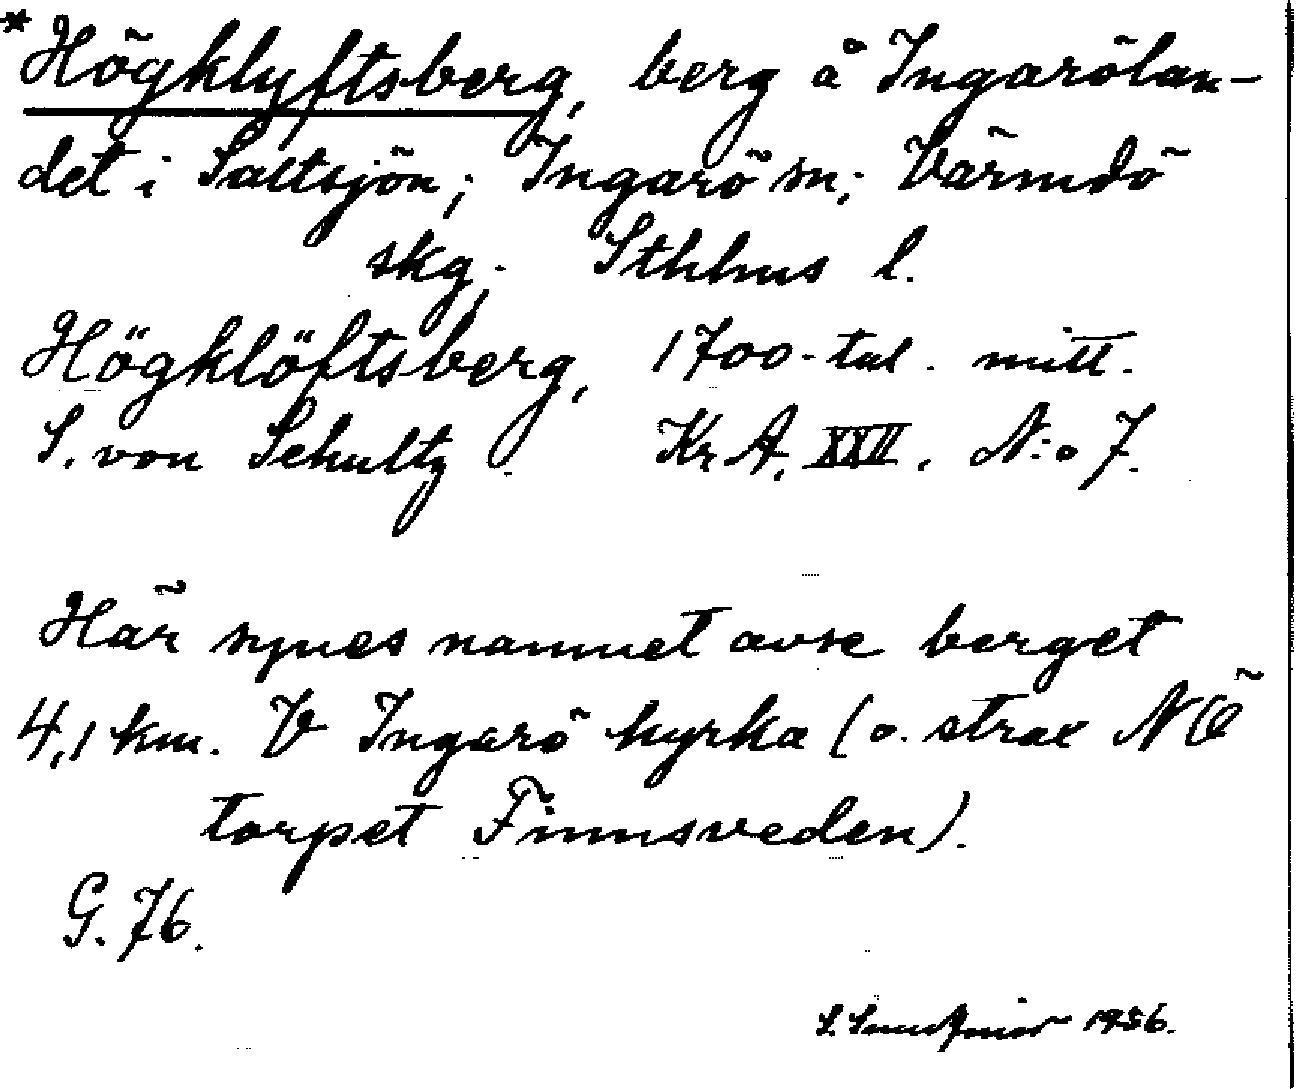 *Högklyftsberg, berg å Ingarölan-
det i Saltsjön; Ingarö sn; Värmdö
skg. Sthlms l.
Högklöftsberg, 1700-tal. mitt.
S. von Schultz KrA, XXII, N:o 7.
Här synes namnet avse berget
4,1 km. V Ingarö kyrka (o. strax NÖ
torpet Finnsveden).
G. 76.
S. 1956.